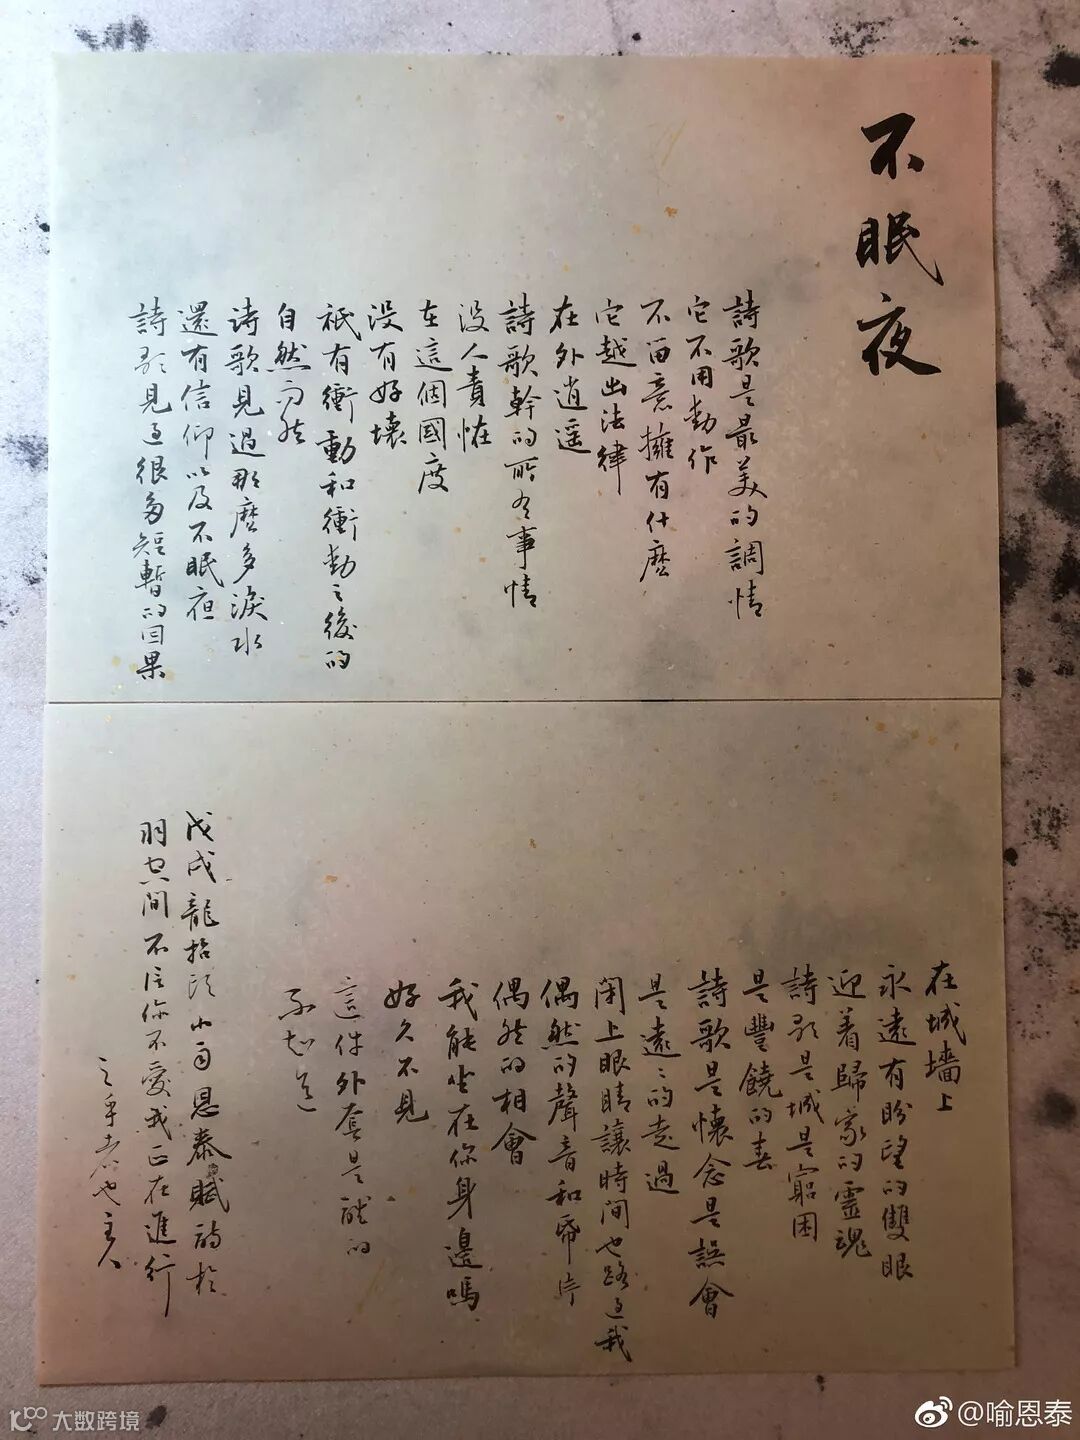 不眠夜
詩歌是最美的調情
它不用動作
不留意擁有什麼
它越出法律
在外逍遥
詩歌幹的所有事情
没人責怪
在這個國度
没有好壞
祇有衝動和衝動之後的
自然而然
诗歌見過那麼多淚水
還有信仰以及不眠夜
詩歌見過很多短暫的因果
在城墻上
永遠有盼望的雙眼
迎着歸家的靈魂
詩歌是城是窮困
是豐饒的春
詩歌是懷念是誤會
是遠遠的走過
閉上眼睛讓時間也路過我
偶然的聲音和帋片
偶然的相會
我能坐在你身邊嗎
好久不見
這件外套是酸的
不知道
戊戌龍抬頭小雨恩泰賦詩於
羽空間不信你不愛我正在進行
之乎者也主人
大数跨境
@喻恩泰